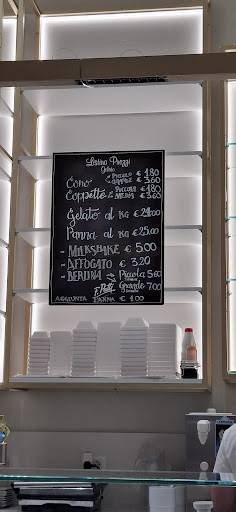 Listino Prezzi
Gelato
Cono PICCOLO € 1.80
GRANDE € 3.60
Coppette PICCOLA € 1.80
MEDIA € 3.60
Gelato al KG €
Panna al KG € 25.00
- MILKSHAKE € 5.00
- AFFOGATO € 3.20
- BERLINA Piccola 5.60
Grande 7.00
AGGIUNTA PANNA € 1.00